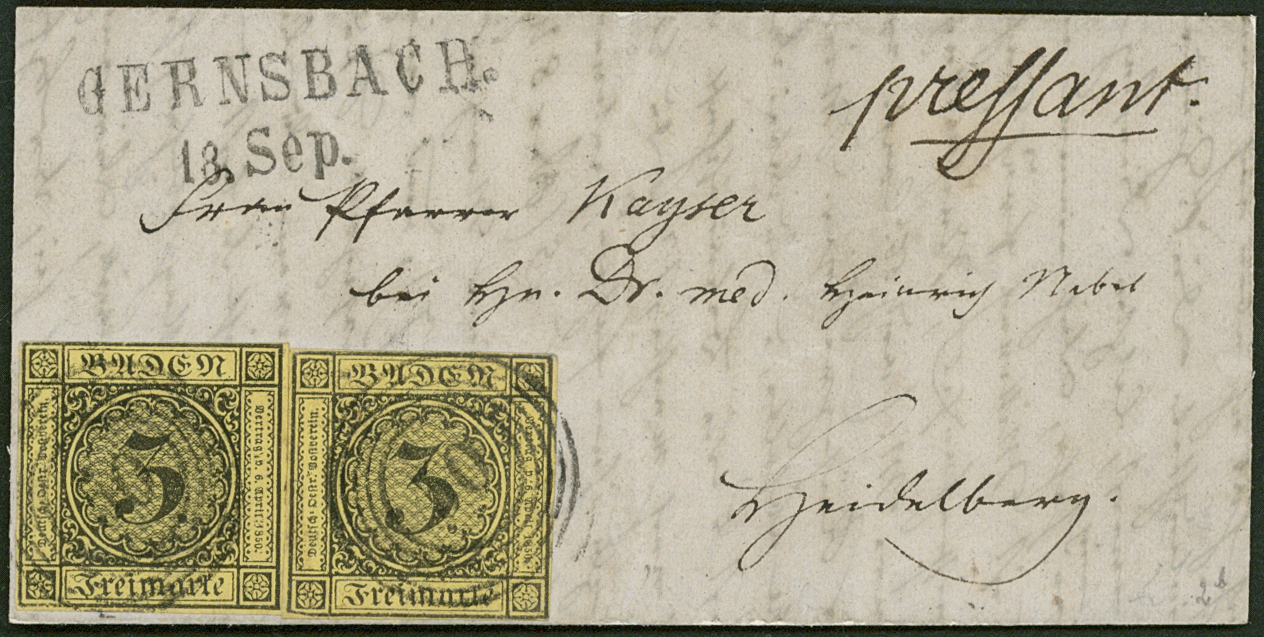 GERNSBACH.
18. Sep.
pressant.
Frau Pfarrer Kayser
bei Hn. Dr. med. Heinrich Nebel
Heidelberg.
BADEN
Deutsch. Oestr. Postverein.
3
Vertrag v. 6. April 1850.
Freimarke
BADEN
Deutsch. Oestr. Postverein.
3
Vertrag v. 6. April 1850.
Freimarke